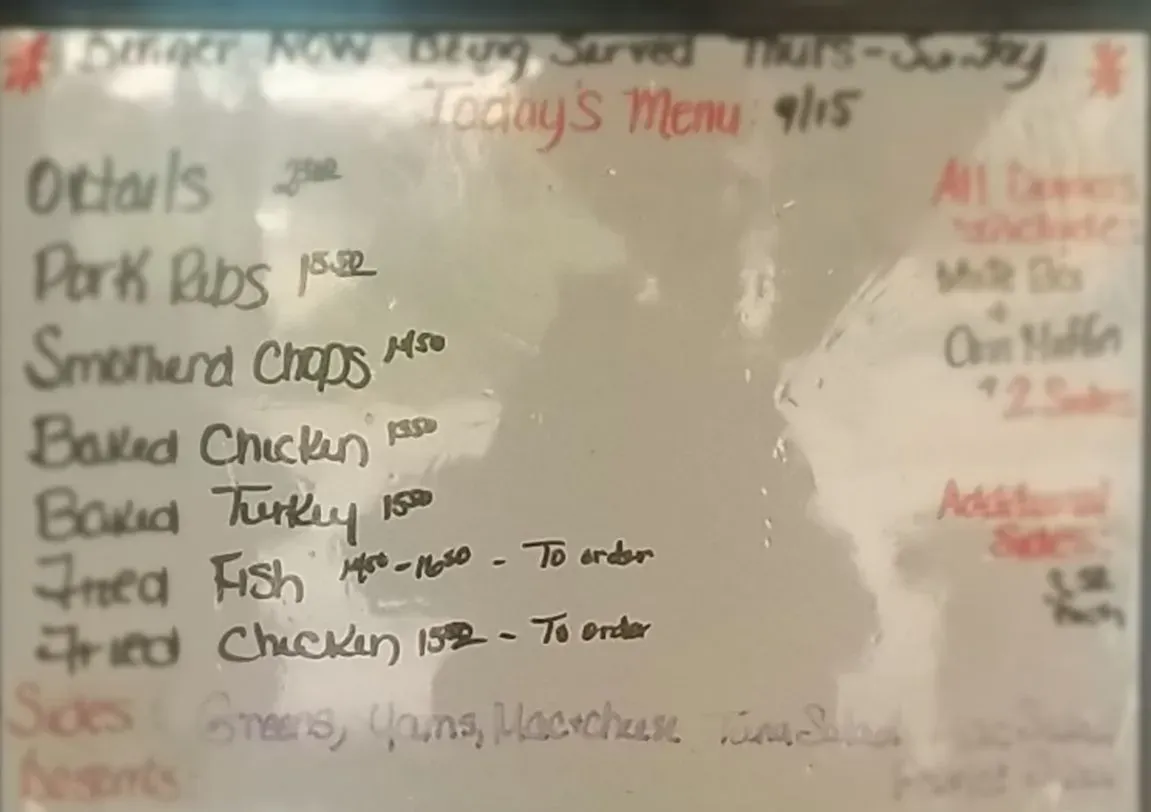 * Dinner NOW Being Served Thurs-Sunday *
Today's Menu: 9/15
Oxtails
Pork Ribs 15.50
Smotherd Chops 14.50
Baked Chicken 13.50
Baked Turkey 15.50
Fried Fish 14.50-16.50 - To order
Fried Chicken 15.50 - To order
Sides: Greens, Yams, Mac+cheese Tuna Salad
Desserts:
All Dinners
include:
+
Corn Muffin
+ 2 Sides
Additional
Sides: